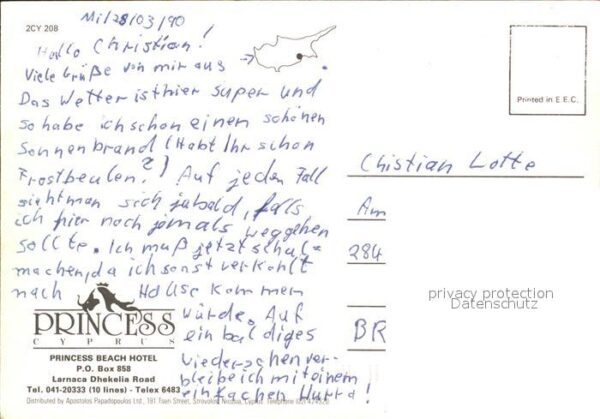 Mi/28/03/90
2CY 208
Hallo Christian!
Viele Grüße von mir aus
Das Wetter ist hier super und
so habe ich schon einen schönen
Sonnenbrand (Habt Ihr schon
Frostbeulen?) Auf jeden Fall
sieht man sich ja bald, falls
ich hier noch jemals weggehen
sollte. Ich muß jetzt schluß
machen, da ich sonst verkohlt
nach Hause kommen
würde. Auf
ein baldiges
Wiedersehen ver-
bleibe ich mit einem
einfachen Hurra!
PRINCESS
CYPRUS
PRINCESS BEACH HOTEL
P.O. Box 858
Larnaca Dhekelia Road
Tel. 041-20333 (10 lines) - Telex 6483
Distributed by Apostolos Papadopoulos Ltd., 191 Tseri Street, Strovolos, Nicosia, Cyprus. Telephone
Printed in E.E.C.
Chistian Lotte
Am
284
BR
privacy protection
Datenschutz